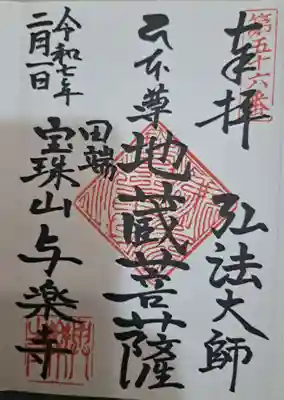 第五十六番
奉拝
弘法大師
本尊
地蔵菩薩
田端
宝珠山与楽寺
令和七年
二月一日